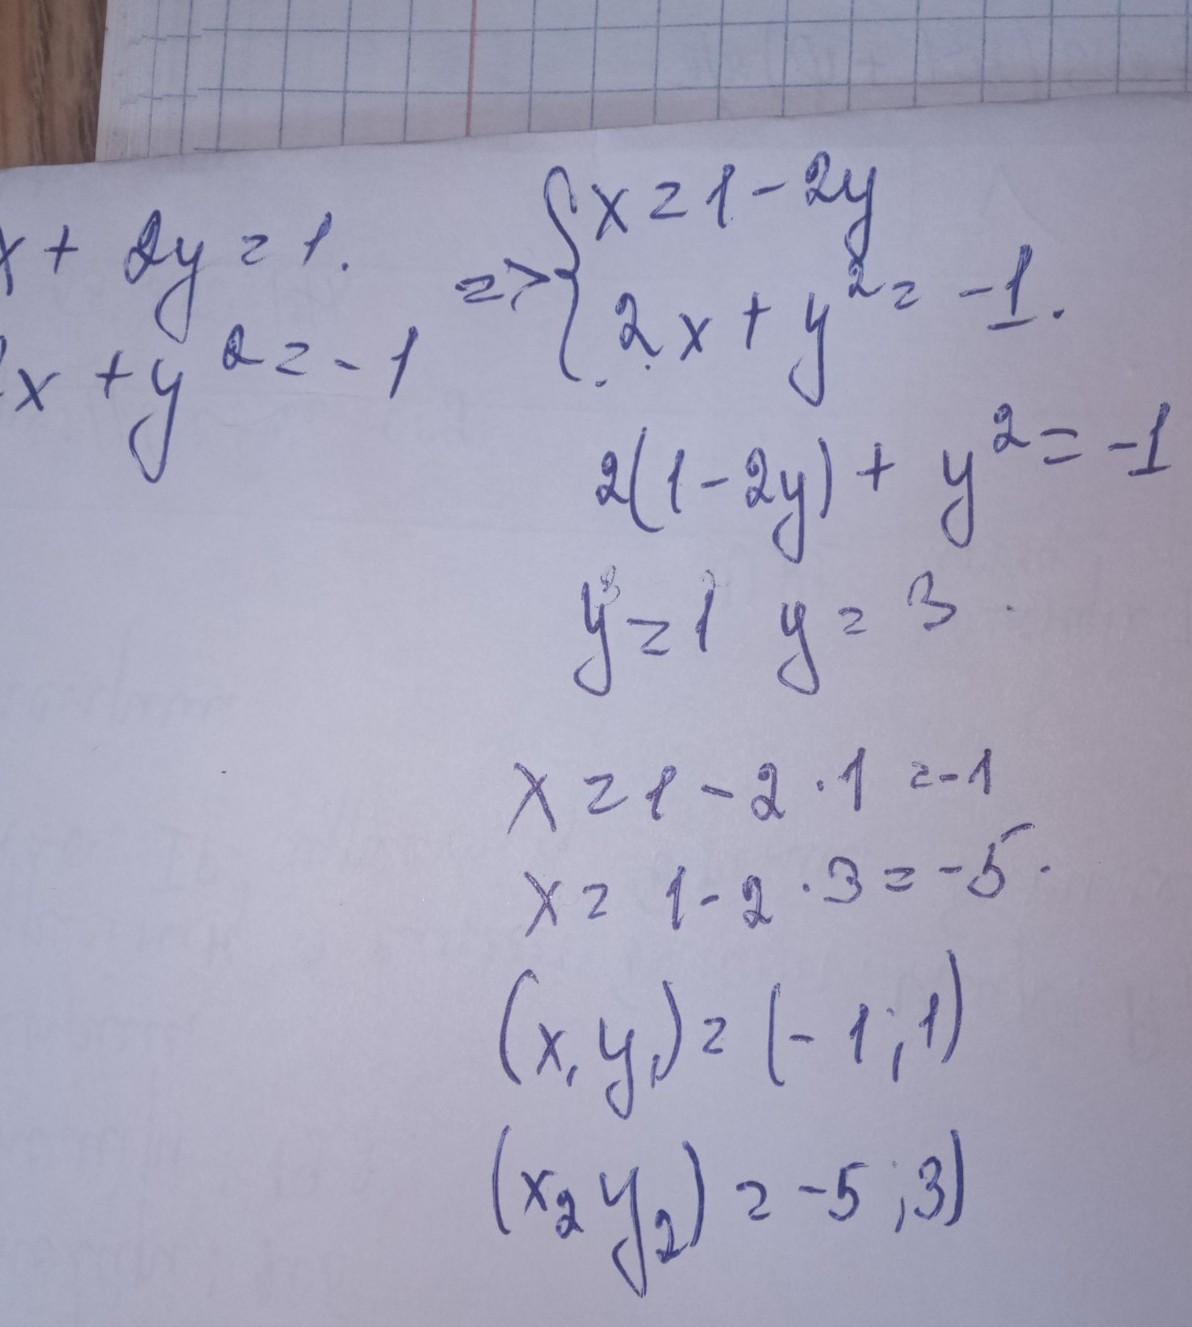 x + 2y = 1.
2x + y² = -1
=> { x = 1 - 2y
2x + y² = -1.
2(1 - 2y) + y² = -1
y = 1 y = 3
x = 1 - 2 · 1 = -1
x = 1 - 2 · 3 = -5.
(x₁ y₁) = (-1; 1)
(x₂ y₂) = -5; 3)